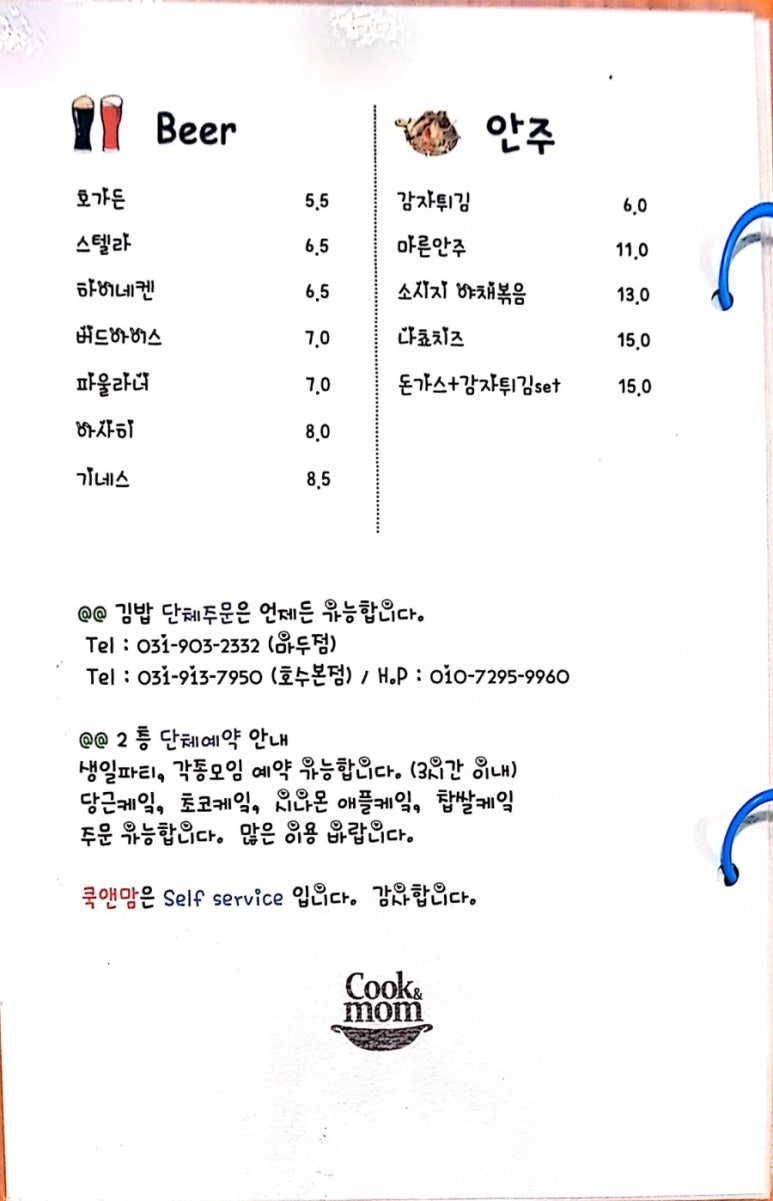 Beer
호가든 5.5
스텔라 6.5
하이네켄 6.5
버드와이스 7.0
파울라너 7.0
아사히 8.0
기네스 8.5
안주
감자튀김 6.0
마른안주 11.0
소시지 야채볶음 13.0
나쵸치즈 15.0
돈가스+감자튀김set 15.0
@@ 김밥 단체주문은 언제든 가능합니다.
Tel : 031-903-2332 (마두점)
Tel : 031-913-7950 (호수본점) / H.P : 010-7295-9960
@@ 2 층 단체예약 안내
생일파티, 각종모임 예약 가능합니다. (3시간 이내)
당근케잌, 초코케잌, 시나몬 애플케잌, 찹쌀케잌
주문 가능합니다. 많은 이용 바랍니다.
쿡앤맘은 Self service 입니다. 감사합니다.
Cook&
mom